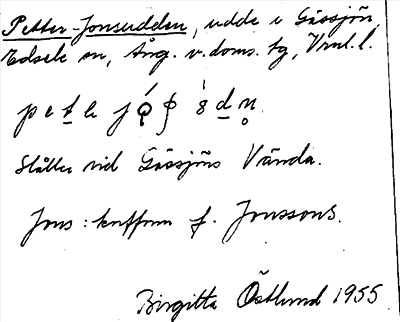 Petter-Jonsudden, udde i Gåssjön,
Edsele sn, Ång. v. doms. tg, Vrnl. l.
Slåtter vid Gåssjöns Vända.
Jons: kortform f. Jonssons.
Birgitta Östlund 1955